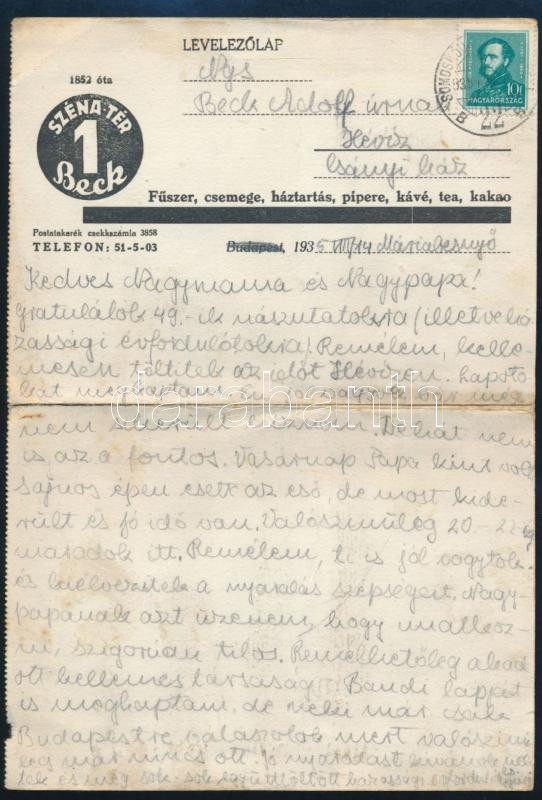 LEVELEZŐLAP
1852 óta
SZÉNA-TÉR
1
Beck
10f
MAGYARORSZÁG
Ngs
Beck Adolf úrnak
Hévíz
Csányi ház
Fűszer, csemege, háztartás, pipere, kávé, tea, kakao
Postatakarék csekkszámla 3858
TELEFON: 51-5-03
Budapest, 1935 VIII/14 Máriabesnyő
Kedves Nagymama és Nagypapa!
Gratulálok 49.-ik nászutatokra (illetve há-
zassági évfordulótokra). Remélem, kelle-
mesen töltitek az időt Hévízen.
kat megkaptam.
nem sikerült De hát nem
is az a fontos. Vasárnap Papa kint volt
sajnos épen esett az eső, de most kide-
rült és jó idő van. Valószinűleg 20.-22-ig
maradok itt. Remélem, ti is jól vagytok
és kiélvezitek a nyaralás szépségeit. Nagy-
papának azt üzenem, hogy
szigorúan tilos. Remélhetőleg akad
ott kellemes társaság. Bandi lapját
is megkaptam, de neki már csak
Budapestre válaszolok mert valószinű-
leg már nincs ott. Jó nyaralást kívánok
és még sok-sok együtt töltött házassági
www.darabanth.com